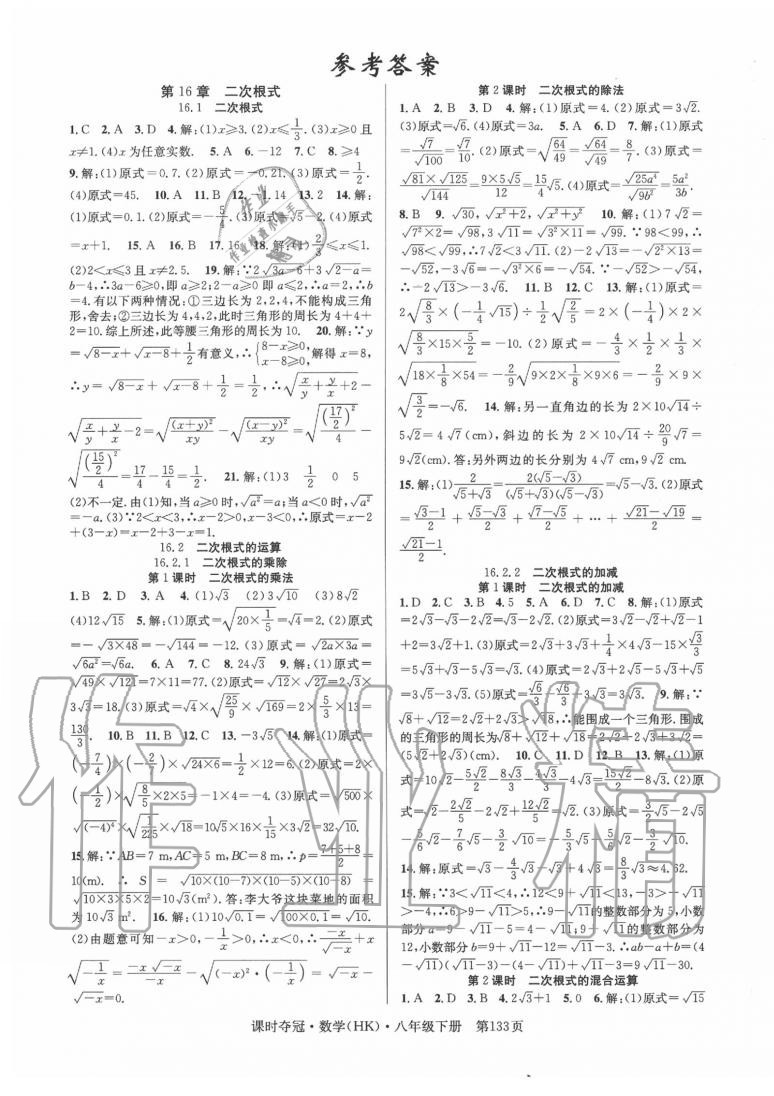 参考答案
第16章 二次根式
16.1 二次根式
1.C 2.A 3.D 4.解:(1)x≥3.(2)x≤1/3.(3)x≥0且
x≠1.(4)x为任意实数. 5.A 6.-12 7.C 8.≥4
9.解:(1)原式=0.7.(2)原式=-0.21.(3)原式=1/2.
(4)原式=45. 10.A 11.B 12.-1.14 13.2 14.解:
(1)原式=0.1.(2)原式=-5/4.(3)原式=√5-2.(4)原式
=x+1. 15.A 16.B 17.16 18.解:(1)2/3≤x≤1.
(2)2<x≤3且x≠2.5. 19.解:∵2√(3a-6)+3√(2-a)=
b-4,∴3a-6≥0,即a≥2;2-a≥0即a≤2,∴a=2,∴b
=4.有以下两种情况:①三边长为2,2,4,不能构成三角
形,舍去;②三边长为4,4,2,此时三角形的周长为4+4+
2=10.综上所述,此等腰三角形的周长为10. 20.解:∵y
=√(8-x)+√(x-8)+1/2有意义,∴{8-x≥0, x-8≥0, 解得x=8,
∴y=√(8-x)+√(x-8)+1/2=1/2,∴√(x/y+y/x+2)-
√(x/y+y/x-2)=√((x+y)²/xy)-√((x-y)²/xy)=√((17/2)²/4)-
√((15/2)²/4)=17/4-15/4=1/2. 21.解:(1)3 1/2 0 5
(2)不一定.由(1)知,当a≥0时,√a²=a;当a<0时,√a²
=-a.(3)∵2<x<3,∴x-2>0,x-3<0,∴原式=x-2
+(3-x)=x-2+3-x=1.
16.2 二次根式的运算
16.2.1 二次根式的乘除
第1课时 二次根式的乘法
1.B 2.D 3.A 4.(1)√3 (2)3√10 (3)8√2
(4)12√15 5.解:(1)原式=√(20×1/5)=√4=2.(2)原式
=-√(3×48)=-√144=-12.(3)原式=√(2a×3a)=
√6a²=√6a. 6.A 7.C 8.24√3 9.解:(1)原式=
√49×√121=7×11=77.(2)原式=√12×√27=2√3×
3√3=18.(3)原式=√4×√(25/9)×√169=2×5/3×13=
130/3. 10.B 11.B 12.C 13.-3√5 14.解:(1)原式=
(-7/4)×(-2/7)×√(24×6)=1/2×12=6.(2)原式=2×
(-1/2)×√(8/5×2×5)=-1×4=-4.(3)原式=√500×
√(-4)⁴×√(1/225)×√18=10√5×16×1/15×3√2=32√10.
15.解:∵AB=7 m,AC=5 m,BC=8 m,∴p=(7+5+8)/2=
10(m). ∴S=√(10×(10-7)×(10-5)×(10-8))=
√(10×3×5×2)=10√3(m²).答:李大爷这块菜地的面积
为10√3 m². 16.解:(1)10√0.1=√(100×0.1)=√10.
(2)由题意可知-x>0,-1/x>0,∴x<0,∴-x/√-x+x
√(-1/x)=-x√-x/-x-√((-x)²·(-1/x))=√-x-
√-x=0.
第2课时 二次根式的除法
1.A 2.B 3.D 4.解:(1)原式=4.(2)原式=3√2.
(3)原式=√6.(4)原式=3a. 5.A 6.A 7.解:(1)原式=
√7/√100=√7/10.(2)原式=√(64/49)=√64/√49=8/7.(3)原式=
√81×√125/√144=9×5√5/12=15/4√5.(4)原式=√25a⁴/√9b²=5a²/3b.
8.B 9.√30,√(x²+2),√(x²+y²) 10.解:(1)7√2=
√(7²×2)=√98,3√11=√(3²×11)=√99.∵98<99,∴
√98<√99,∴7√2<3√11.(2)-2√13=-√(2²×13)=
-√52,-3√6=-√(3²×6)=-√54.∵-√52>-√54,
∴-2√13>-3√6. 11.B 12.C 13.解:(1)原式=
2√(8/3)×(-1/4√15)÷1/2√(2/5)=2×(-1/4)×2×
√(8/3×15×5/2)=-10.(2)原式=-4/3×1/2×1/3×
√(18×1/8×54)=-2/9√(9×2×1/8×9×6)=-2/9×9×
√(3/2)=-√6. 14.解:另一直角边的长为2×10√14÷
5√2=4√7(cm),斜边的长为2×10√14÷20/9√7=
9√2(cm).答:另外两边的长分别为4√7 cm,9√2 cm.
15.解:(1)2/(√5+√3)=2(√5-√3)/((√5+√3)(√5-√3)).(2)原式
=(√3-1)/2+(√5-√3)/2+(√7-√5)/2+…+(√21-√19)/2=
(√21-1)/2.
16.2.2 二次根式的加减
第1课时 二次根式的加减
1.D 2.C 3.B 4.5 5.A 6.D 7.C 8.解:(1)原式
=2√3-√3-2√2=√3-2√2.(2)原式=2√3+√2-1
+2=3√2+1.(3)原式=2√3+3√3+1/4×4√3-15×√3/3
=5√3+√3-5√3=√3.(4)原式=2√3+2√5-5√3+√5
=3√5-3√3.(5)原式=√6/3-√6/3+3√3=3√3. 9.解:∵
√8+√12=2√2+2√3>√18,∴能围成一个三角形.围成
的三角形的周长为√8+√12+√18=2√2+2√3+3√2=
(5√2+2√3)(cm). 10.C 11.D 12.B 13.解:(1)原
式=10√2-5√2/2-8√3/3-4√3/3-4√3=15√2/2-8√3.(2)原
式=√2-2√2/5-2√2+12√2/5=√2.(3)原式=3√5/2-2√5-
5√6/6-√2-7√6/6-5√5/2-√2=-3√5-2√6-3√10.
14.解:原式=√3-4/3√3+√3+2√3=8/3√3≈4.62.
15.解:∵3<√11<4,∴12<9+√11<13,-3>-√11
>-4,∴6>9-√11>5,∴9-√11的整数部分为5,小数
部分a=9-√11-5=4-√11;9+√11的整数部分为
12,小数部分b=9+√11-12=√11-3.∴ab-a+b=(4
-√11)(√11-3)-(4-√11)+√11-3=8√11-30.
第2课时 二次根式的混合运算
1.A 2.D 3.A 4.2√3+1 5.0 6.解:(1)原式=√15
课时夺冠·数学(HK)·八年级下册 第133页